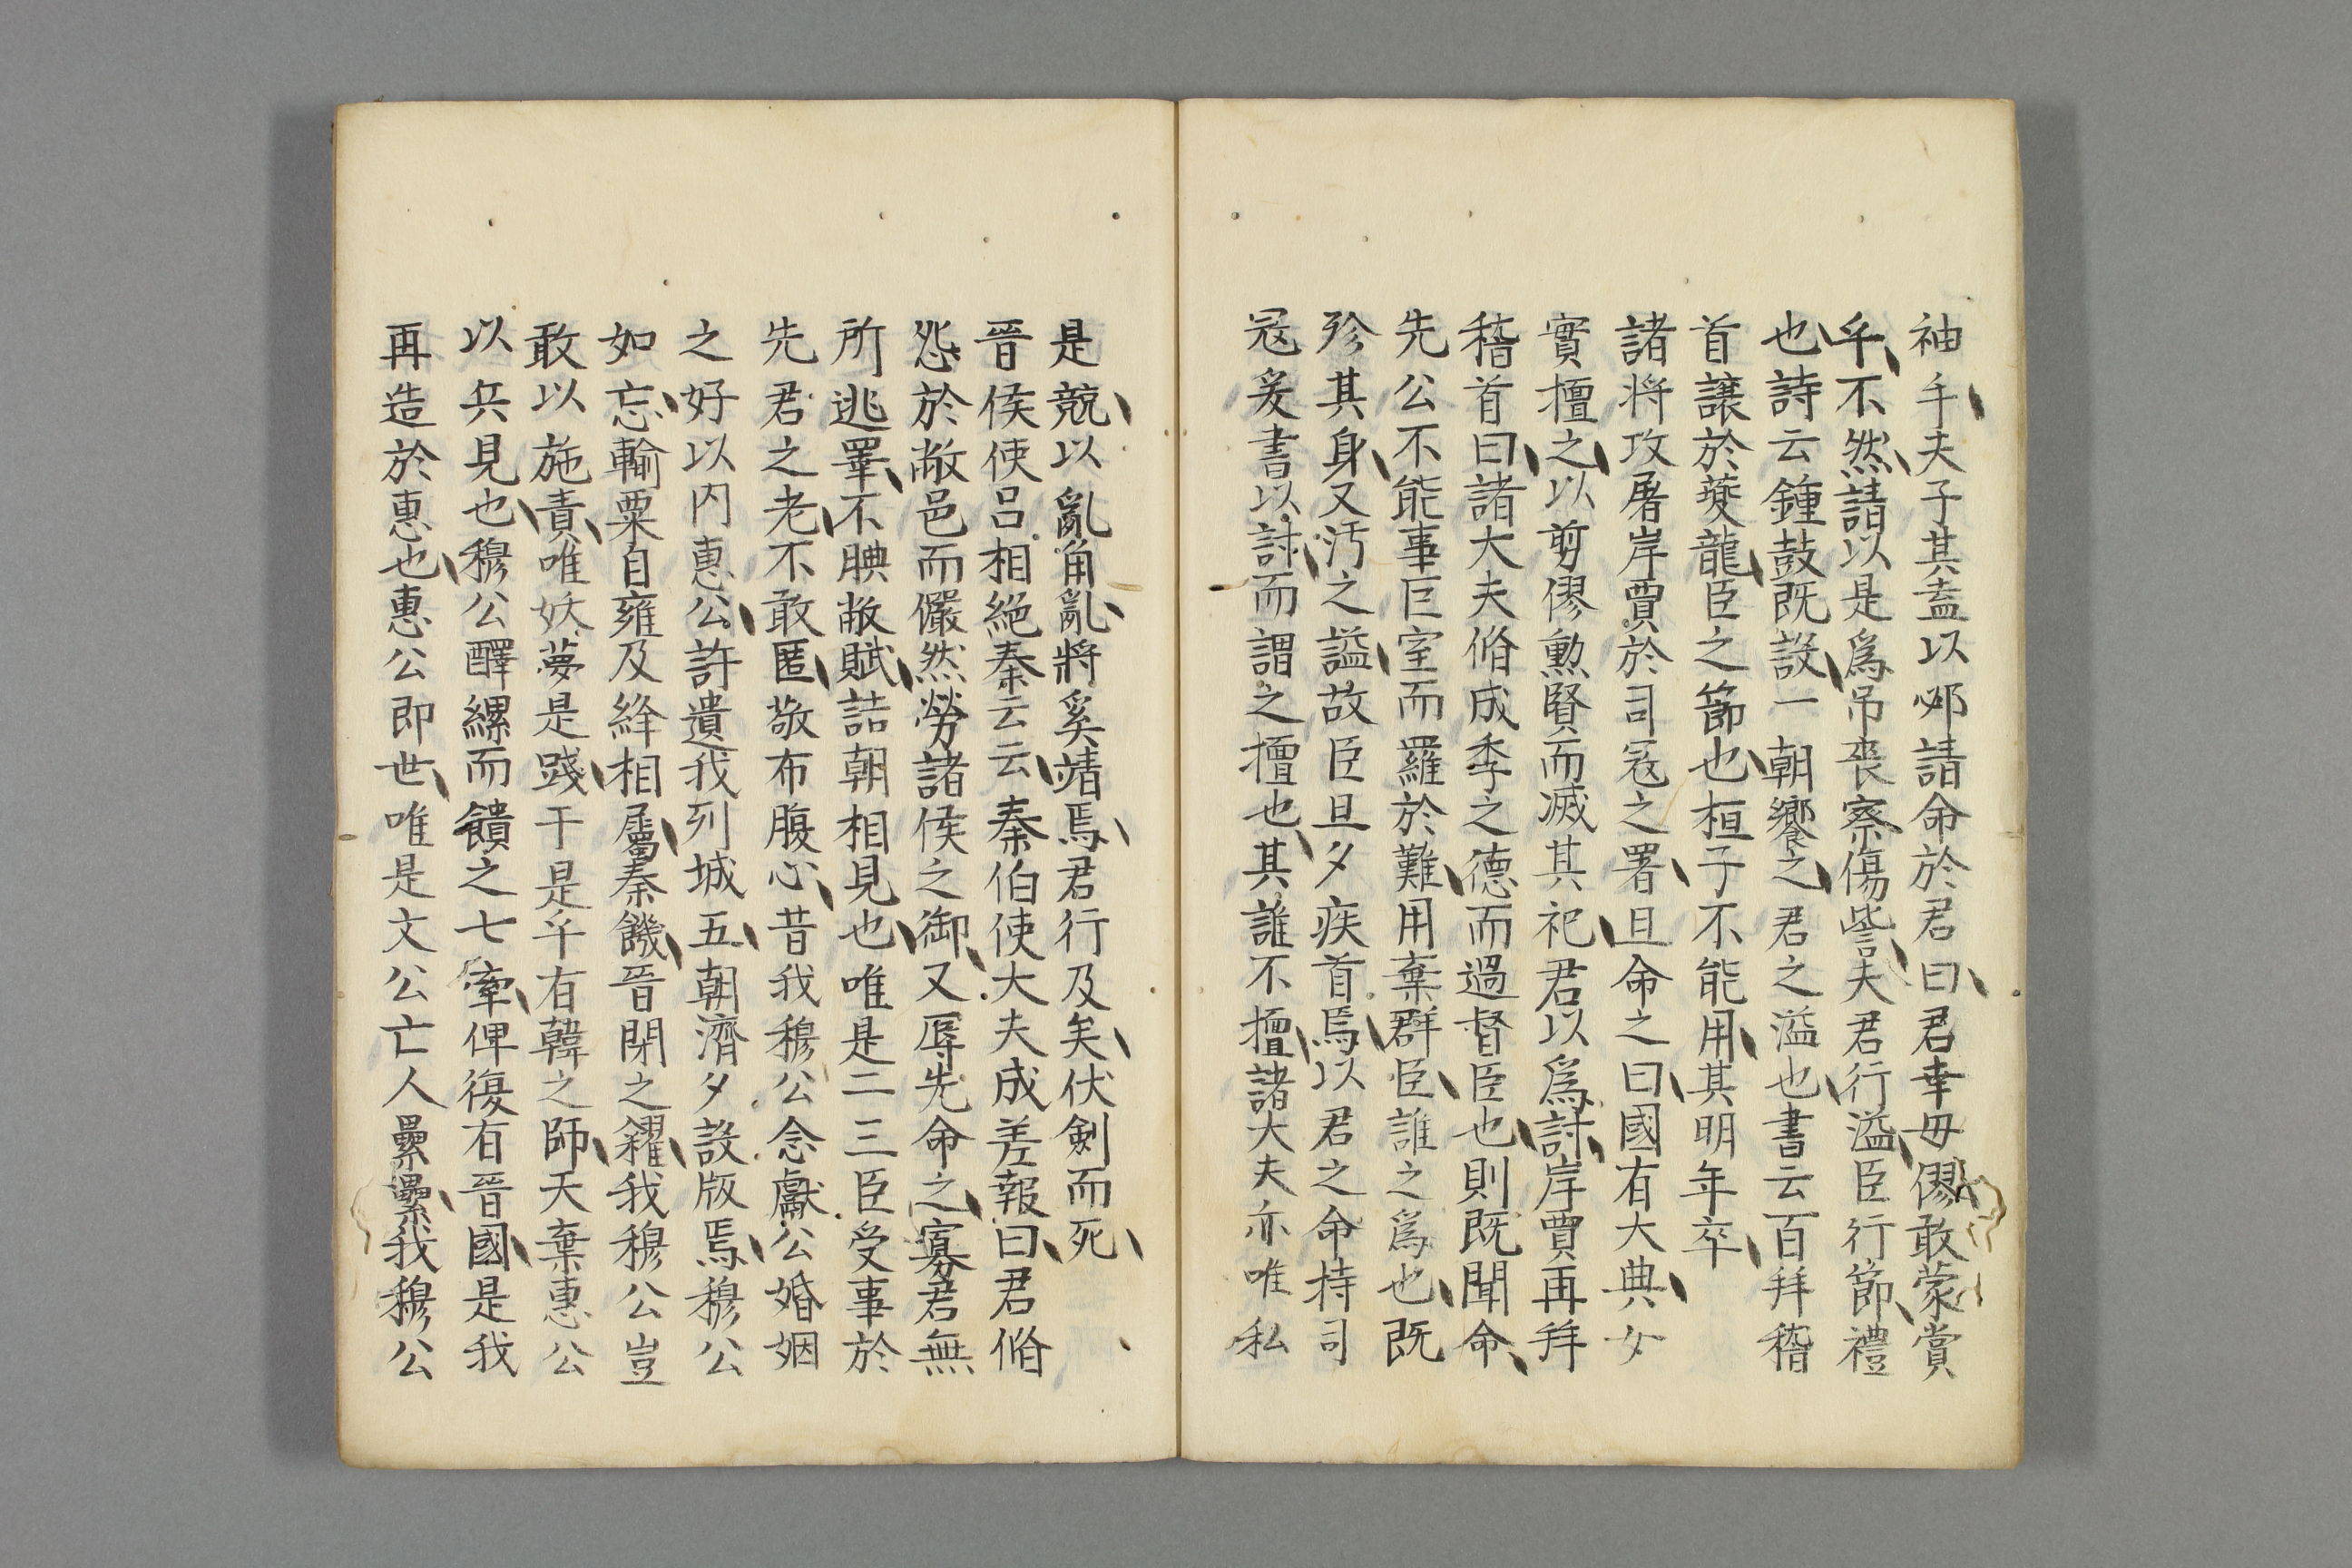 袖手夫子其盍以邲請命於君曰君幸毋僇敢蒙賞
乎不然請以是爲吊喪察傷訾夫君行溢臣行節禮
也詩云鍾鼓既設一朝饗之君之溢也書云百拜稽
首讓於夔龍臣之節也桓子不能用其明年卒
諸將攻屠岸賈於司寇之署旦命之曰國有大典女
實擅之以剪僇勲賢而滅其祀君以爲討岸賈再拜
稽首曰諸大夫脩成季之德而過督臣也則既聞命
先公不能事巨室而羅於難用棄群臣誰之爲也既
殄其身又汚之謚故臣旦夕疾首焉以君之命持司
寇爰書以討而謂之擅也其誰不擅諸大夫亦唯私
是競以亂角亂將奚靖焉君行及矣伏劍而死
晉侯使呂相絕秦云云秦伯使大夫成差報曰君脩
怨於敝邑而儼然勞諸侯之御又辱先命之寡君無
所逃罪不腆敝賦詰朝相見也唯是二三臣受事於
先君之老不敢匿敬布腹心昔我穆公念獻公婚姻
之好以内惠公許遺我列城五朝濟夕設版焉穆公
如忘輸粟自雍及絳相屬秦饑晉閉之糴我穆公豈
敢以施責唯妖夢是踐于是乎有韓之師天棄惠公
以兵見也穆公釋纍而饋之七牢俾復有晉國是我
再造於惠也惠公即世唯是文公亡人纍纍我穆公